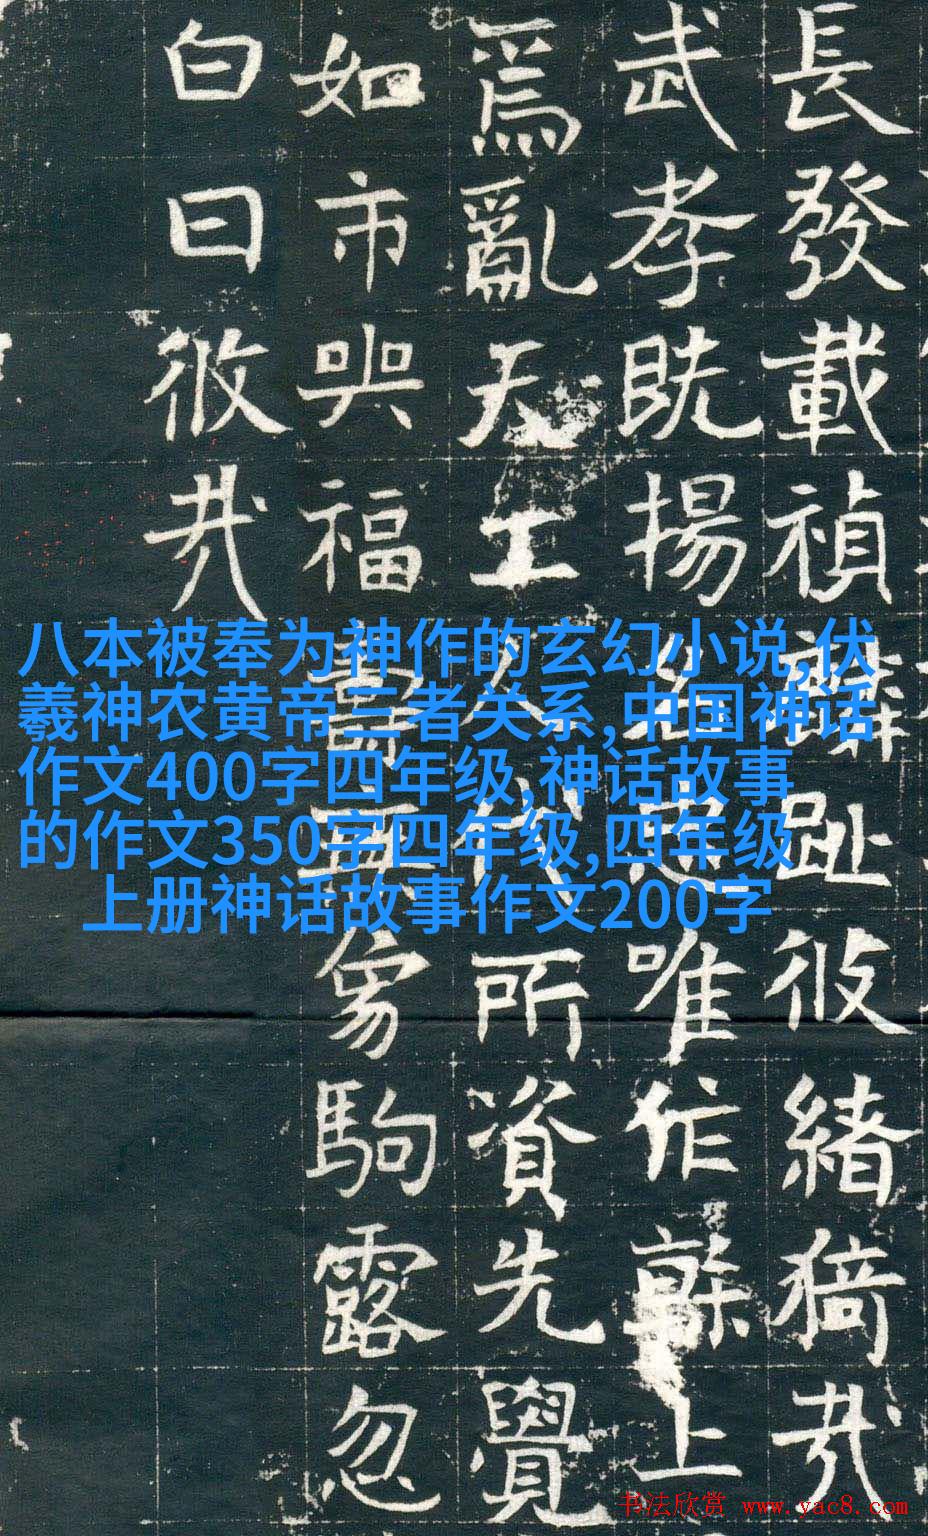 長發載禎趾攸緒猗哉
武孝既揚唯作幹上
爲亂天工代所資先覺
如市與福無象駒露忽
白日攸哉
八本被奉为神作的玄幻小说,伏
羲神农黄帝三者关系,中国神话
作文400字四年级,神话故事
的作文350字四年级,四年级
上册神话故事作文200字
书法欣赏 www.yac8.com